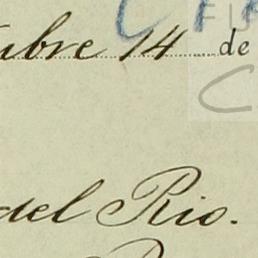 ubre 14 de
del Rio.